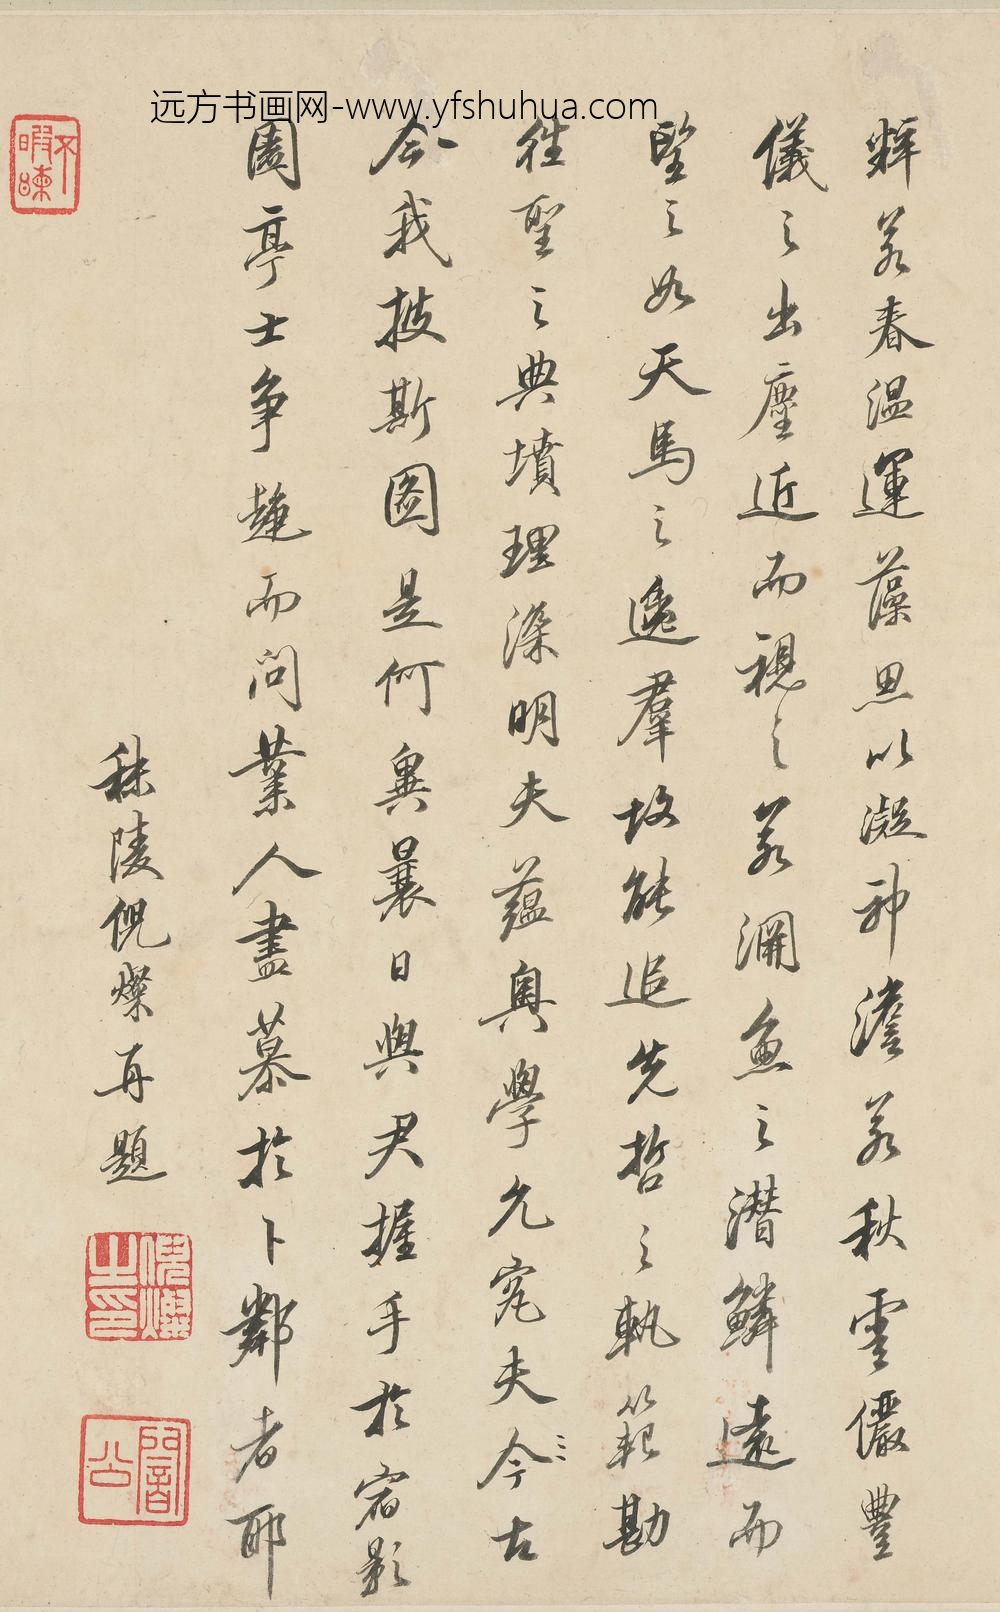 远方书画网-www.yfshuhua.com
粹若春温運藻思以凝神澹若秋雲儼豐
儀之出塵近而視之若淵魚之潜鱗遠而
望之如天馬之逸羣故能追先哲之軌範勘
往聖之典墳理深明夫蘊奥學允究夫今古
今我披斯圖是何異曩日與君握手於宿影
園亭士争趍而問業人盡慕於卜鄰者耶
秣陵倪燦再題
倪燦之印
闇公